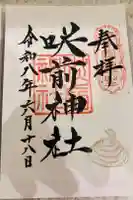 奉拝
咲前神社
令和八年六月十八日